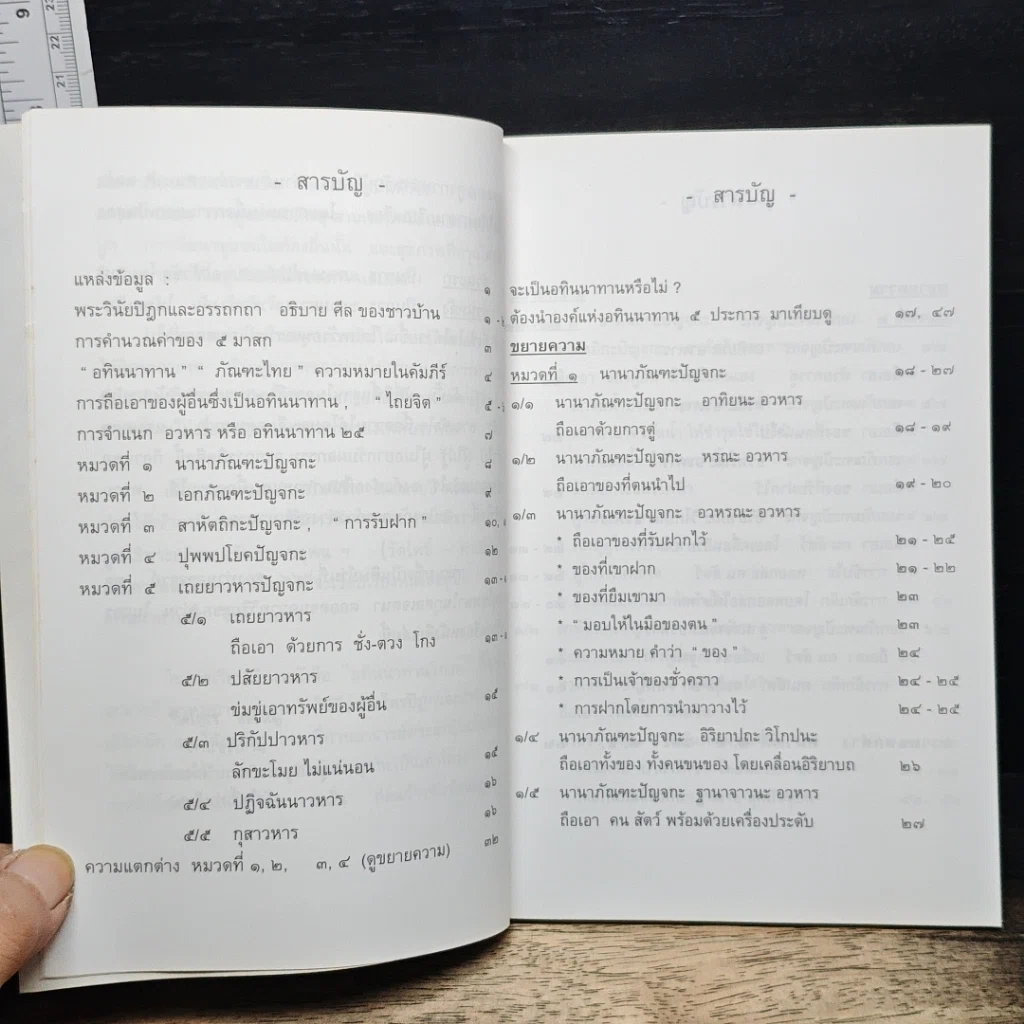 - สารบัญ -
แหล่งข้อมูล : ๑
พระวินัยปิฎกและอรรถกถา อธิบาย ศีล ของชาวบ้าน ๑ -
การคำนวณค่าของ ๕ มาสก ๓
“ อทินนาทาน ” “ ภัณฑะไทย ” ความหมายในคัมภีร์ ๔
การถือเอาของผู้อื่นซึ่งเป็นอทินนาทาน , “ ไถยจิต ” ๕ -
การจำแนก อวหาร หรือ อทินนาทาน ๒๕ ๗
หมวดที่ ๑ นานาภัณฑะปัญจกะ ๘
หมวดที่ ๒ เอกภัณฑะปัญจกะ ๙
หมวดที่ ๓ สาหัตถิกะปัญจกะ , “ การรับฝาก ” ๑๐,
หมวดที่ ๔ ปุพพปโยคปัญจกะ ๑๒
หมวดที่ ๕ เถยยาวหารปัญจกะ ๑๓ -
๕/๑ เถยยาวหาร
ถือเอา ด้วยการ ชั่ง-ตวง โกง ๑๓ -
๕/๒ ปสัยยาวหาร
ข่มขู่เอาทรัพย์ของผู้อื่น ๑๕
๕/๓ ปริกัปปาวหาร
ลักขะโมย ไม่แน่นอน ๑๕
๕/๔ ปฏิจฉันนาวหาร ๑๖
๕/๕ กุสาวหาร ๑๖
ความแตกต่าง หมวดที่ ๑, ๒, ๓, ๔ (ดูขยายความ) ๓๒
- สารบัญ -
จะเป็นอทินนาทานหรือไม่ ?
ต้องนำองค์แห่งอทินนาทาน ๕ ประการ มาเทียบดู ๑๗, ๔๗
ขยายความ
หมวดที่ ๑ นานาภัณฑะปัญจกะ ๑๘ - ๒๗
๑/๑ นานาภัณฑะปัญจกะ อาทิยนะ อวหาร
ถือเอาด้วยการตู่ ๑๘ - ๑๙
๑/๒ นานาภัณฑะปัญจกะ หรณะ อวหาร
ถือเอาของที่ตนนำไป ๑๙ - ๒๐
๑/๓ นานาภัณฑะปัญจกะ อวหรณะ อวหาร
* ถือเอาของที่รับฝากไว้ ๒๑ - ๒๕
* ของที่เขาฝาก ๒๑ - ๒๒
* ของที่ยืมเขามา ๒๓
* “ มอบให้ในมือของตน ” ๒๓
* ความหมาย คำว่า “ ของ ” ๒๔
* การเป็นเจ้าของชั่วคราว ๒๔ - ๒๕
* การฝากโดยการนำมาวางไว้ ๒๔ - ๒๕
๑/๔ นานาภัณฑะปัญจกะ อิริยาปถะ วิโกปนะ
ถือเอาทั้งของ ทั้งคนขนของ โดยเคลื่อนอิริยาบถ ๒๖
๑/๕ นานาภัณฑะปัญจกะ ฐานาจาวนะ อวหาร
ถือเอา คน สัตว์ พร้อมด้วยเครื่องประดับ ๒๗
9
23
22
21